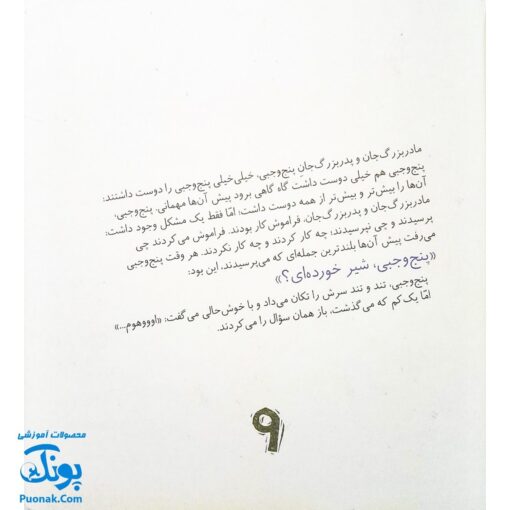 مادربزرگ‌جان و پدربزرگ‌جانِ پنج‌وجبی، خیلی‌خیلی پنج‌وجبی را دوست داشتند؛
پنج‌وجبی هم خیلی دوست داشت گاه گاهی برود پیش آن‌ها مهمانی. پنج‌وجبی،
آن‌ها را بیش‌تر و بیش‌تر از همه دوست داشت؛ امّا فقط یک مشکل وجود داشت:
مادربزرگ‌جان و پدربزرگ‌جان، فراموش‌کار بودند. فراموش می‌کردند چی
پرسیدند و چی نپرسیدند؛ چه کار کردند و چه کار نکردند. هر وقت پنج‌وجبی
می‌رفت پیش آن‌ها بلندترین جمله‌ای که می‌پرسیدند، این بود:
«پنج‌وجبی، شیر خورده‌ای؟»
پنج‌وجبی، تند و تند سرش را تکان می‌داد و با خوش‌حالی می‌گفت: «اوووهوم...»
امّا یک‌کم که می‌گذشت، باز همان سؤال را می‌کردند.
۹
محصولات آموزشی
پونک
Puonak.Com